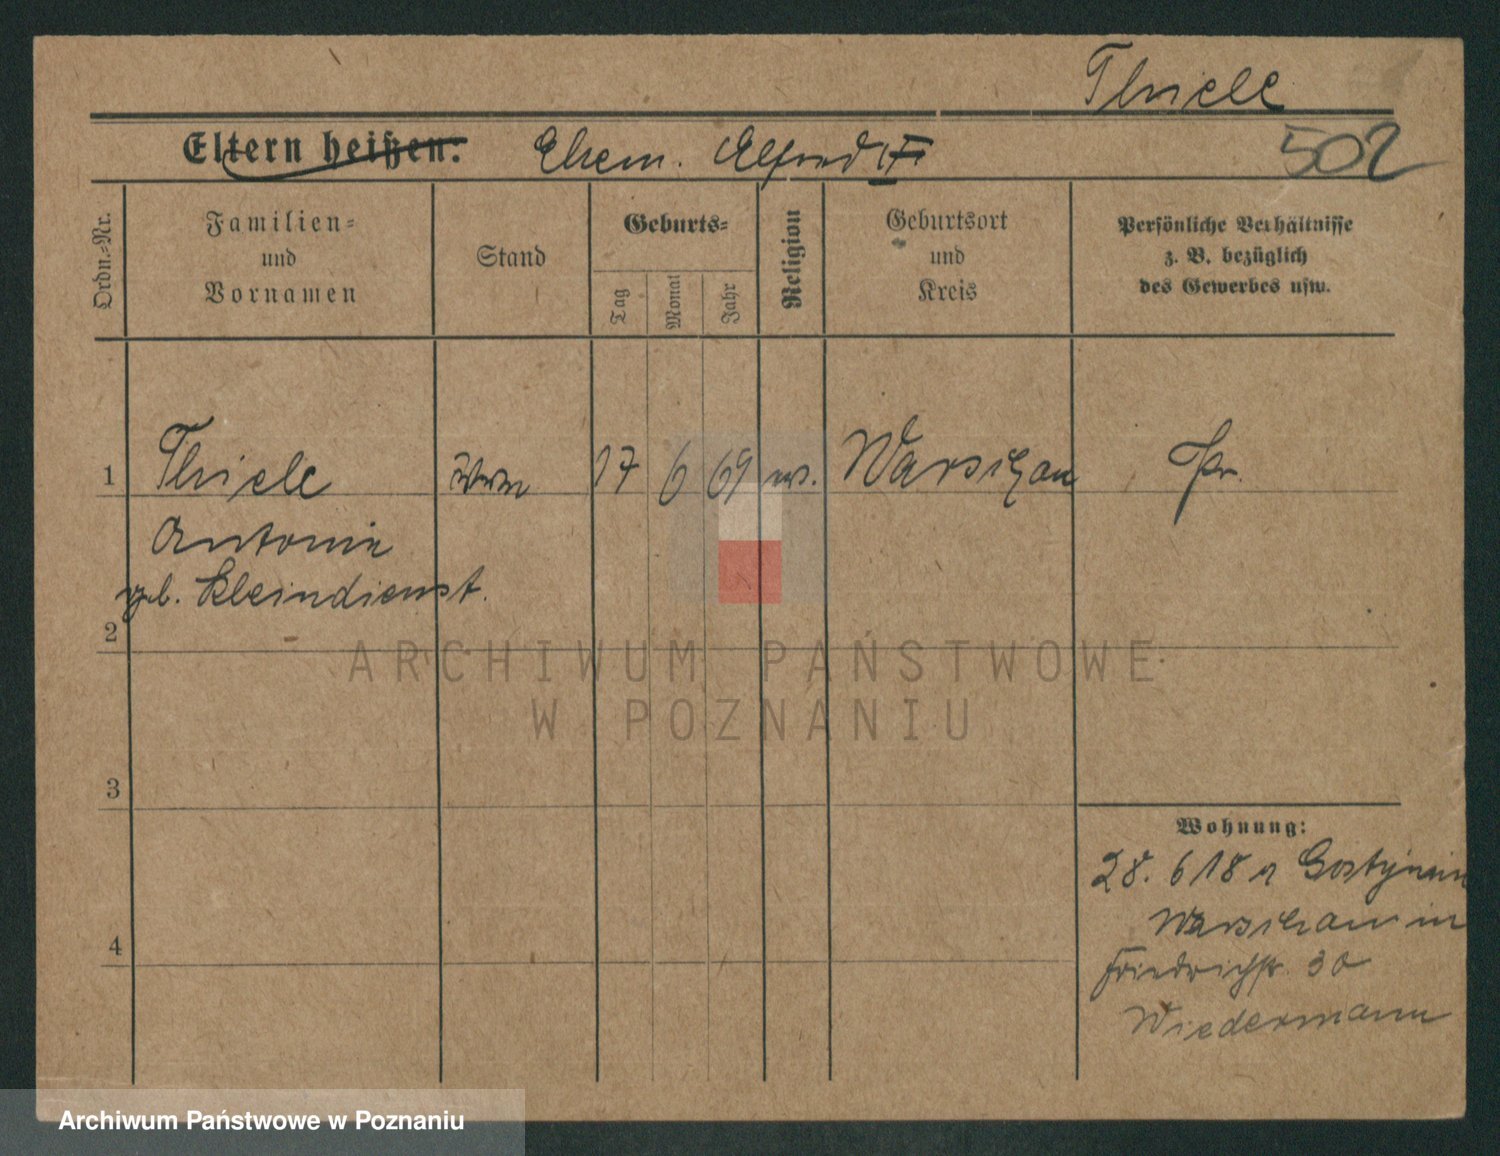 Thiele
502
Eltern heißen: Ehem. Alfred
Ordn.-Nr.
Familien- und Vornamen
Stand
Geburts-
Tag
Monat
Jahr
Religion
Geburtsort und Kreis
Persönliche Verhältnisse
z. B. bezüglich
des Gewerbes usw.
1 Thiele Wwe 17 6 69 ev. Warschau Pr.
Antonie
geb. Kleindienst.
2
3
4
Wohnung:
28. 6 18 a Gostynin
Warschau in
Friedrichstr. 30
Wiedermann
ARCHIWUM PAŃSTWOWE
W POZNANIU
Archiwum Państwowe w Poznaniu